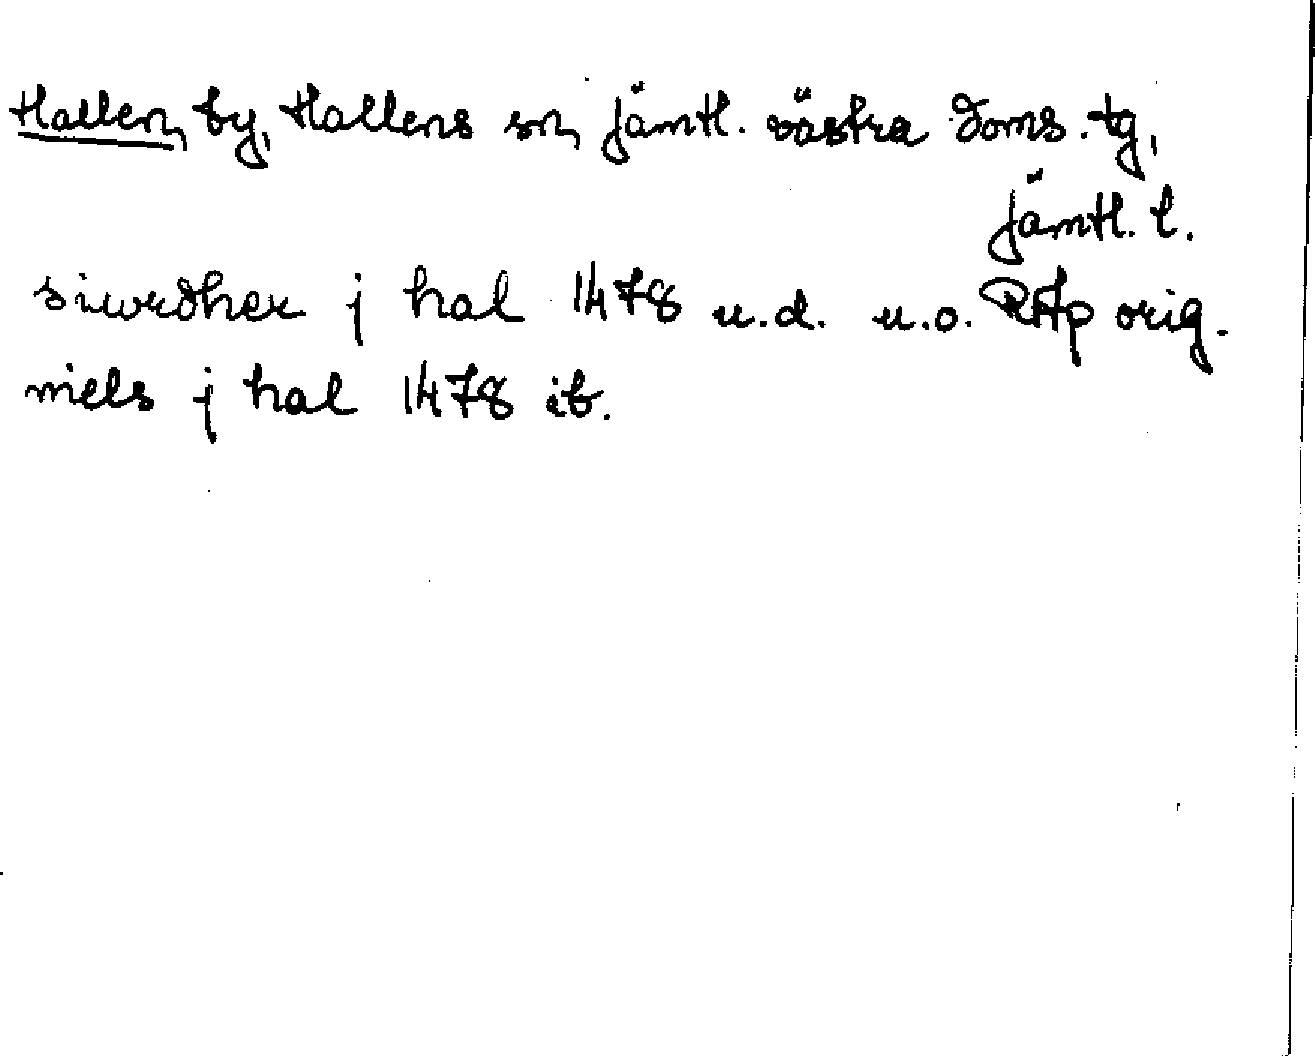 Hallen, by, Hallens sn, Jämtl. västra doms. tg,
Jämtl. l.
siwrdher j hal 1478 u.d. u.o. RAp orig.
niels j hal 1478 ib.